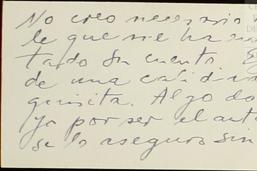 No creo necesario
le que me ha en
tado su cuento. E
de una calidad
quisita. Algo do
ya por ser el aut
se lo aseguro sin